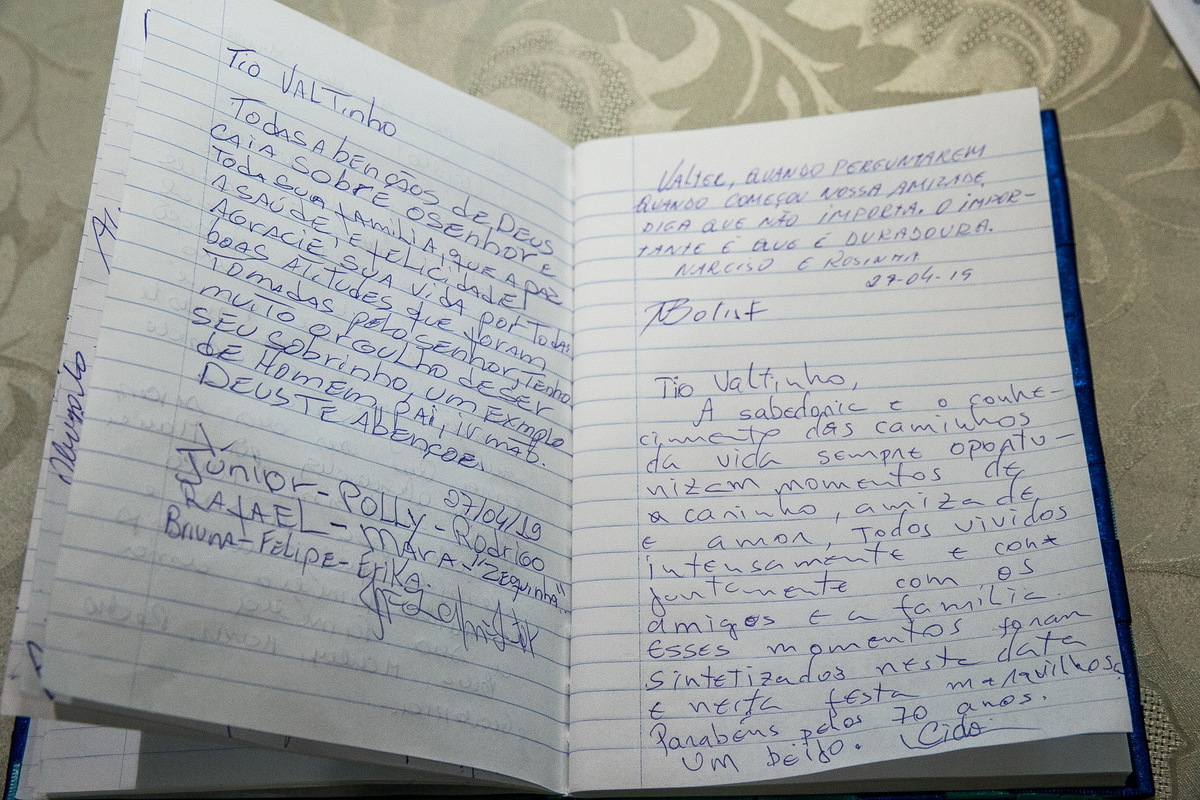 Tio VALTinho
TODAS A bENÇÃOS de DEUS
CAIA SOBRE O SENHOR E
TODA SUA fAMiLIA, QUE A PAZ
A SAÚDE, E fELICIDADE,
AGRACIE SUA VIDA pOR TODAS
bOAS AtiTUDES QUE foram
TOMADAS pelo SENHOR, TENHO
muiTO ORGULHO DE SER
SEU SObRINHO, UM EXEMPLO
DE HOMEM, PAI, IRMÃO.
DEUS TE AbENÇOE.
27/04/19
JÚNIOR - POLLY - RODRIGO
RAFAEL - MARA "ZEQUINHA"
Bruna - FELIPE - ERIKA.
VALTER, QUANDO PERGUNTAREM
QUANDO COMEÇOU NOSSA AMIZADE,
DIGA QUE NÃO IMPORTA. O IMPOR-
TANTE É QUE É DURADOURA.
NARCISO E ROSINHA
27-04-19
Tio Valtinho,
A sabedoria e o conhe-
cimento das caminhos
da vida sempre oportu-
nizam momentos de
carinho, amizade,
e amor, Todos vividos
intensamente e con
juntamente com os
amigos e a família.
Esses momentos foram
sintetizados nesta data
e nesta festa maravilhosa
Parabéns pelos 70 anos.
Um beijo. Cido